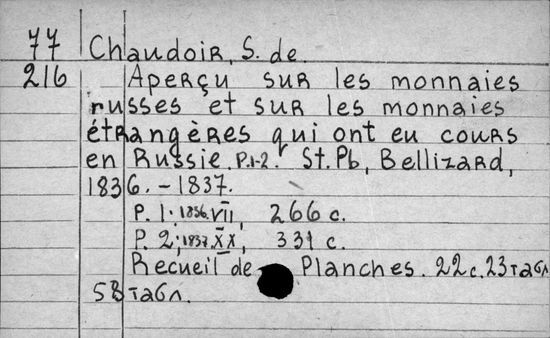 77 Chaudoir, S. de.
216 Aperçu sur les monnaies
russes et sur les monnaies
étrangères qui ont eu cours
en Russie. P.1-2. St.Pb, Bellizard,
1836. – 1837.
P. 1: 1836. VII, 266 с.
P. 2; 1837. XX, 331 с.
Recueil de Planches. 22 с. 23 табл
58 табл.